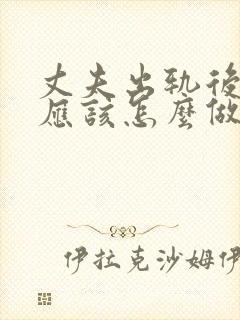 丈夫出轨後
應該怎麼做
伊拉克沙姆伊